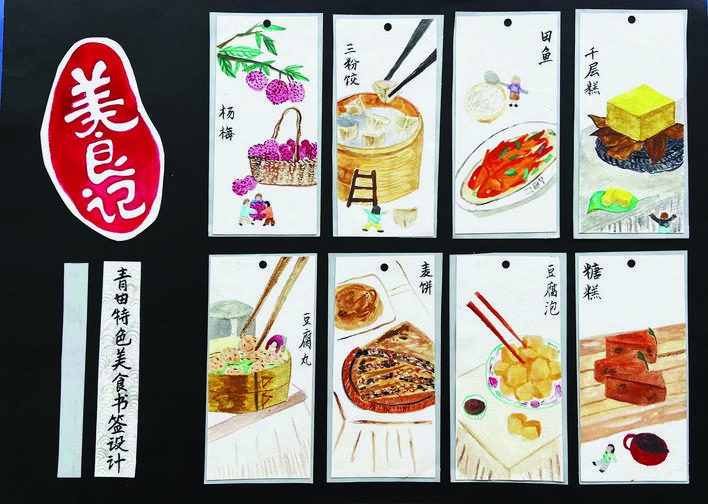 美食记
青田特色美食书签设计
杨梅
三粉饺
田鱼
千层糕
豆腐丸
麦饼
豆腐泡
糖糕